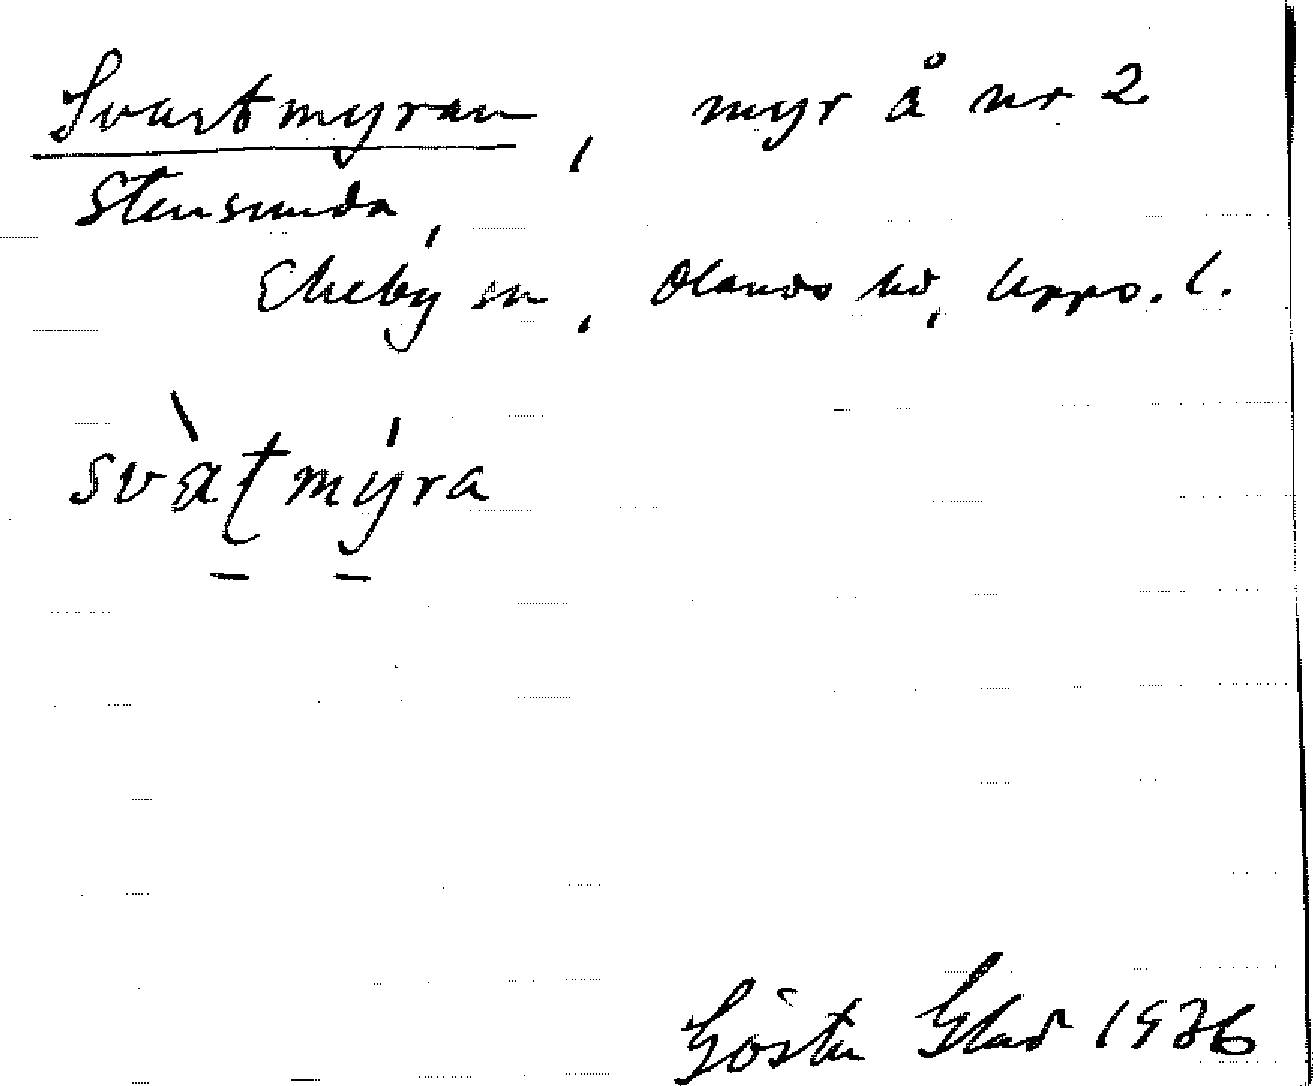 Svartmyran, myr å nr 2
Stensunda,
Ekeby sn, Olands hd, Upps. l.
svàtmýra
Gösta Glad 1936